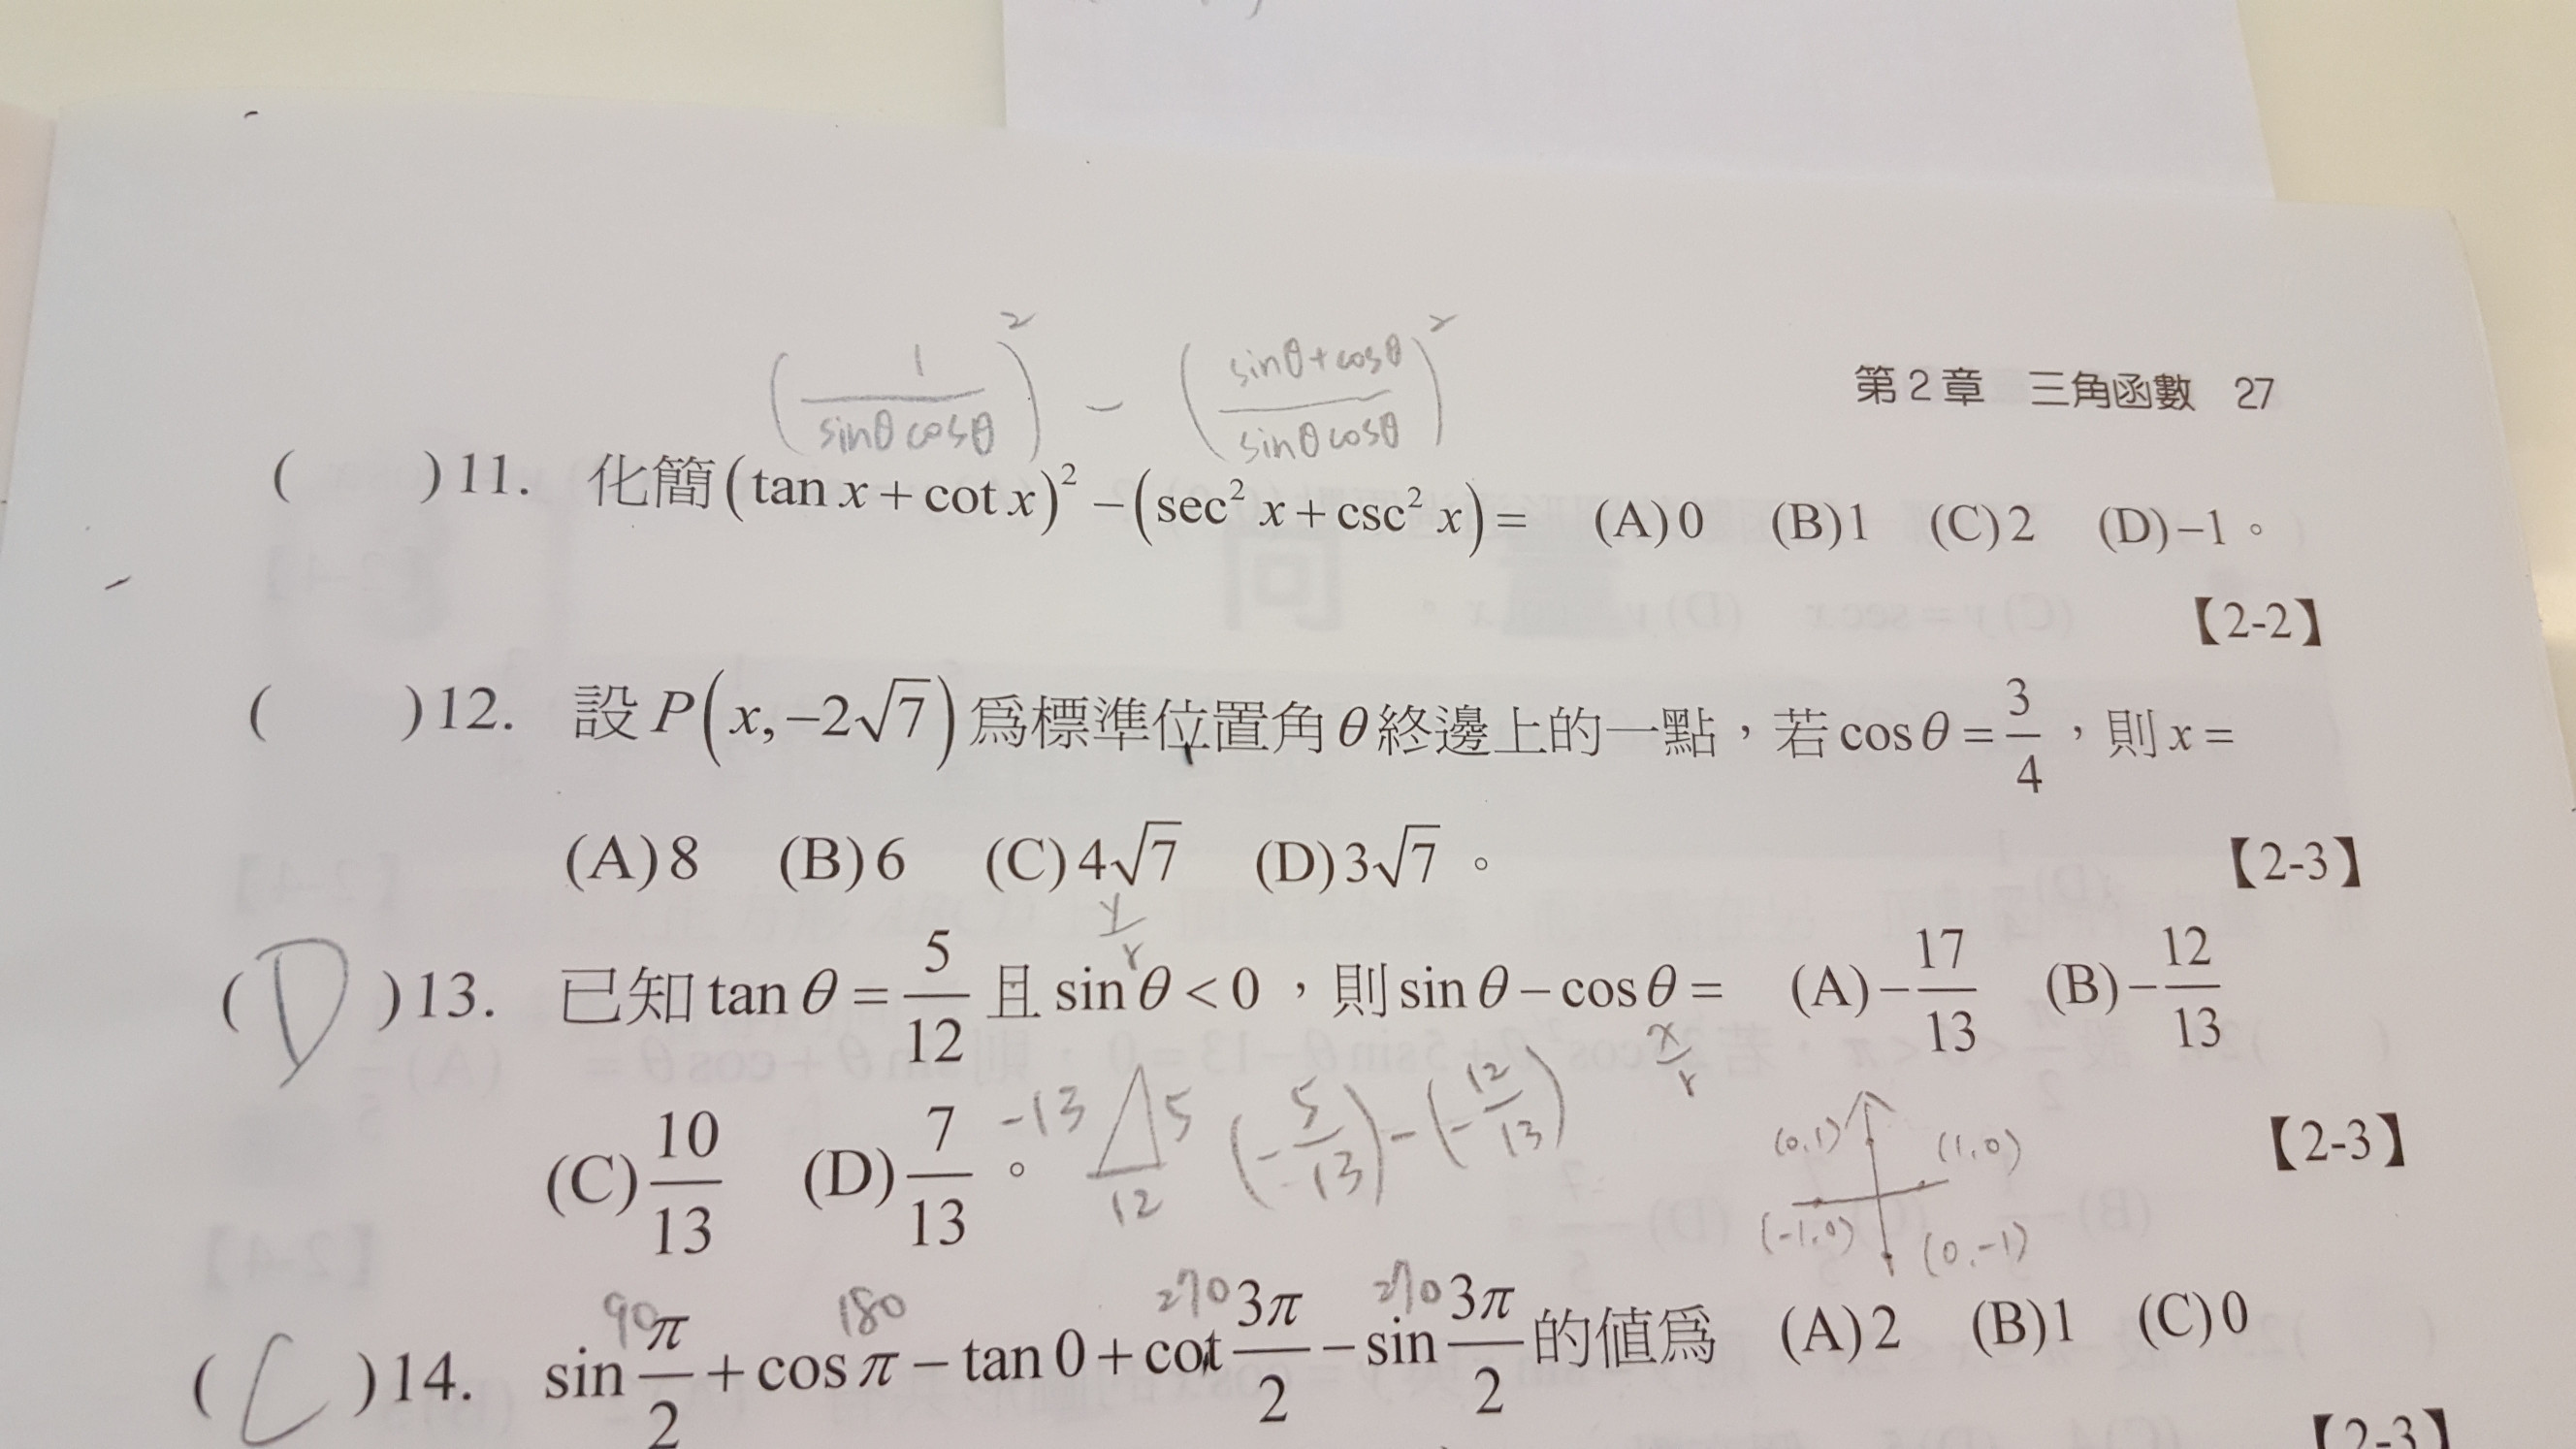 第2章 三角函數 27
(1/(sinθcosθ))² − ((sinθ+cosθ)/(sinθcosθ))²
( )11. 化簡(tan x + cot x)² −(sec² x + csc² x)= (A)0 (B)1 (C)2 (D)−1。
【2-2】
( )12. 設P(x, −2√7)為標準位置角θ終邊上的一點，若cosθ = 3/4，則x =
(A)8 (B)6 (C)4√7 (D)3√7。
【2-3】
y/r
(D)13. 已知tanθ = 5/12 且sinθ < 0，則sinθ − cosθ = (A)−17/13 (B)−12/13
x/r
(C)10/13 (D)7/13。
【2-3】
-13 5 12 (−5/13)−(−12/13)
(0,1) (1,0)
(-1,0) (0,-1)
90 180 270 270
(C)14. sin π/2 + cosπ − tan0 + cot 3π/2 − sin 3π/2 的值為 (A)2 (B)1 (C)0
【2-3】